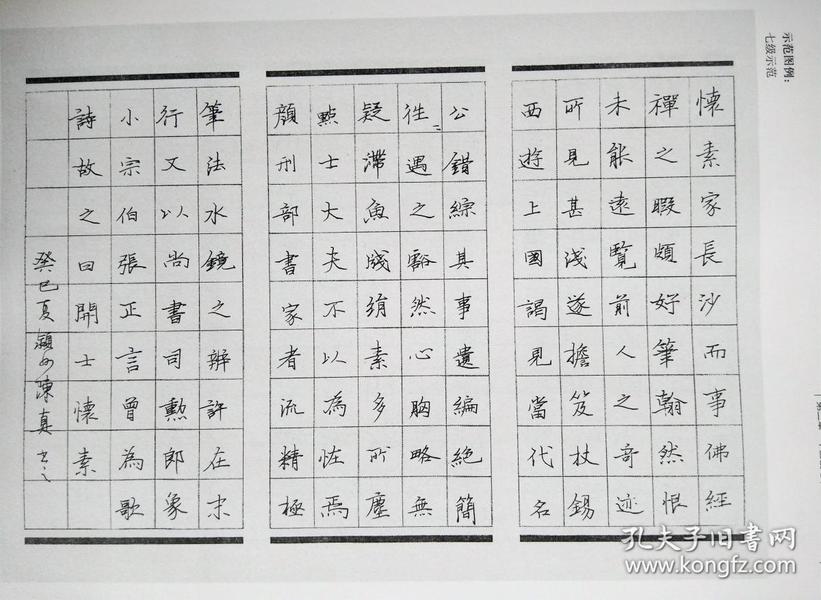 示范图例：
七级示范
懐素家長沙而事佛經
禪之暇頗好筆翰然恨
未能遠覽前人之奇迹
所見甚淺遂擔笈杖錫
西遊上國謁見當代名
公錯綜其事遺編絕簡
往〻遇之豁然心胸略無
疑滯魚牋絹素多所塵
點士大夫不以為恠焉
顔刑部書家者流精極
筆法水鏡之辨許在末
行又以尚書司勲郎象
小宗伯張正言曾為歌
詩故之曰開士懐素
癸巳夏 陳真書之
孔夫子旧书网
www.kongfz.com